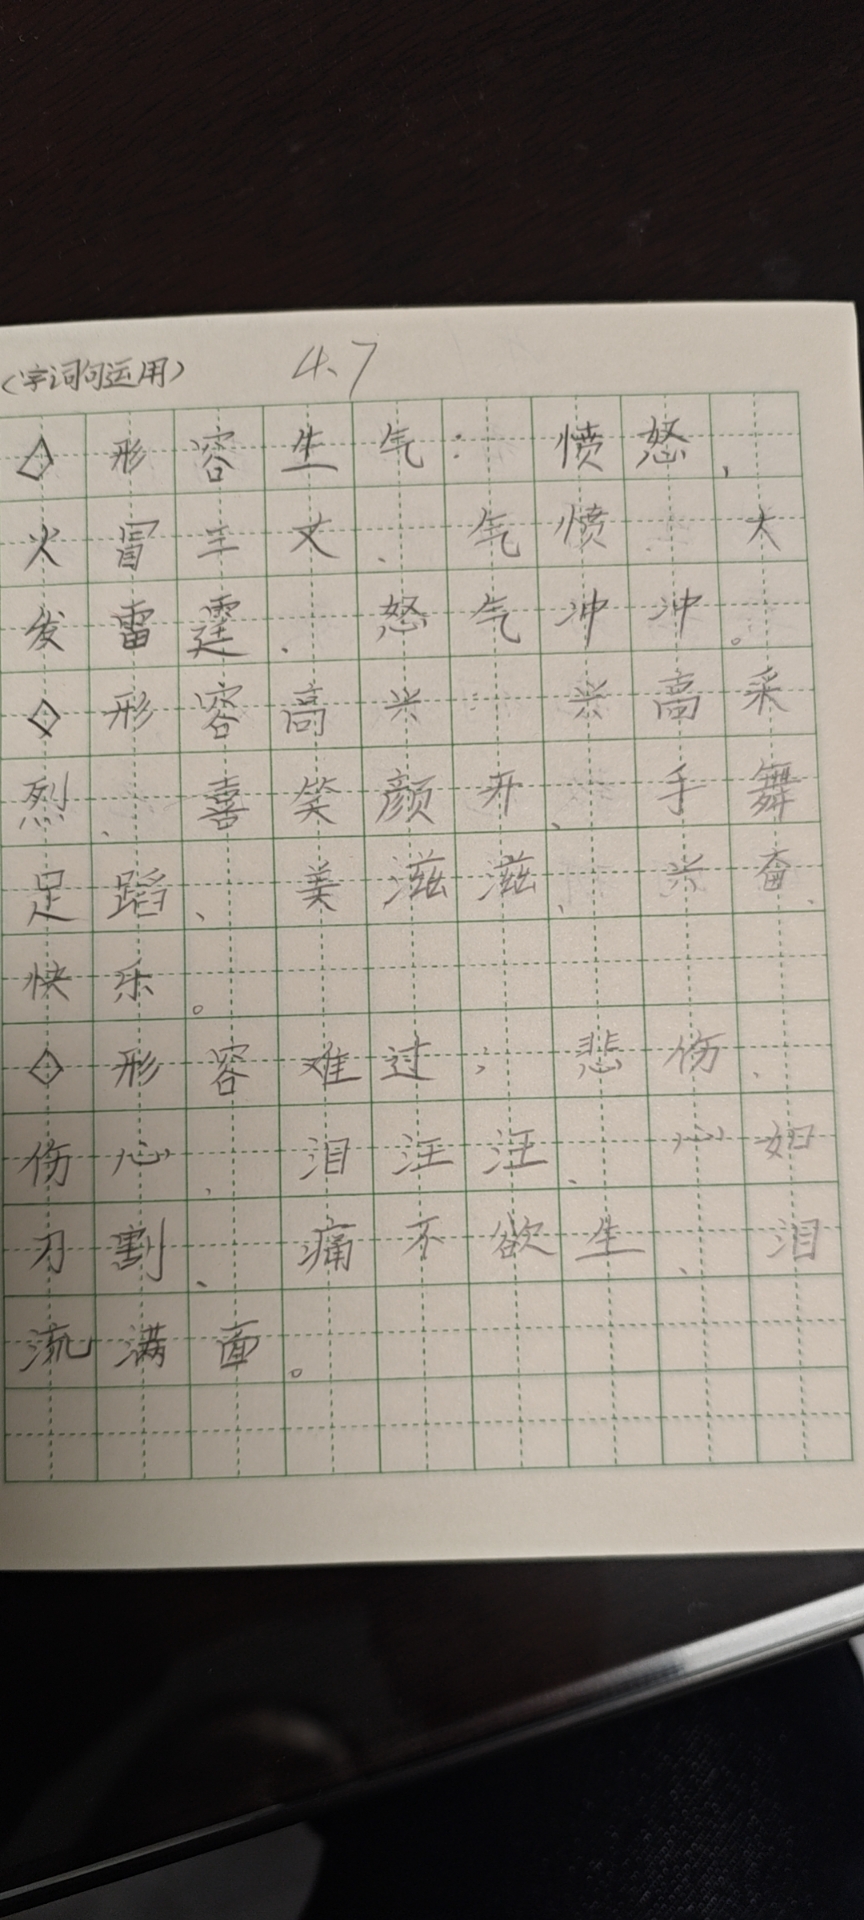 （字词句运用） 4.7
◇形容生气：愤怒、
火冒三丈、气愤 大
发雷霆、怒气冲冲。
◇形容高兴：兴高采
烈、喜笑颜开、手舞
足蹈、美滋滋、兴奋、
快乐。
◇形容难过：悲伤、
伤心、泪汪汪、心如
刀割、痛不欲生、泪
流满面。